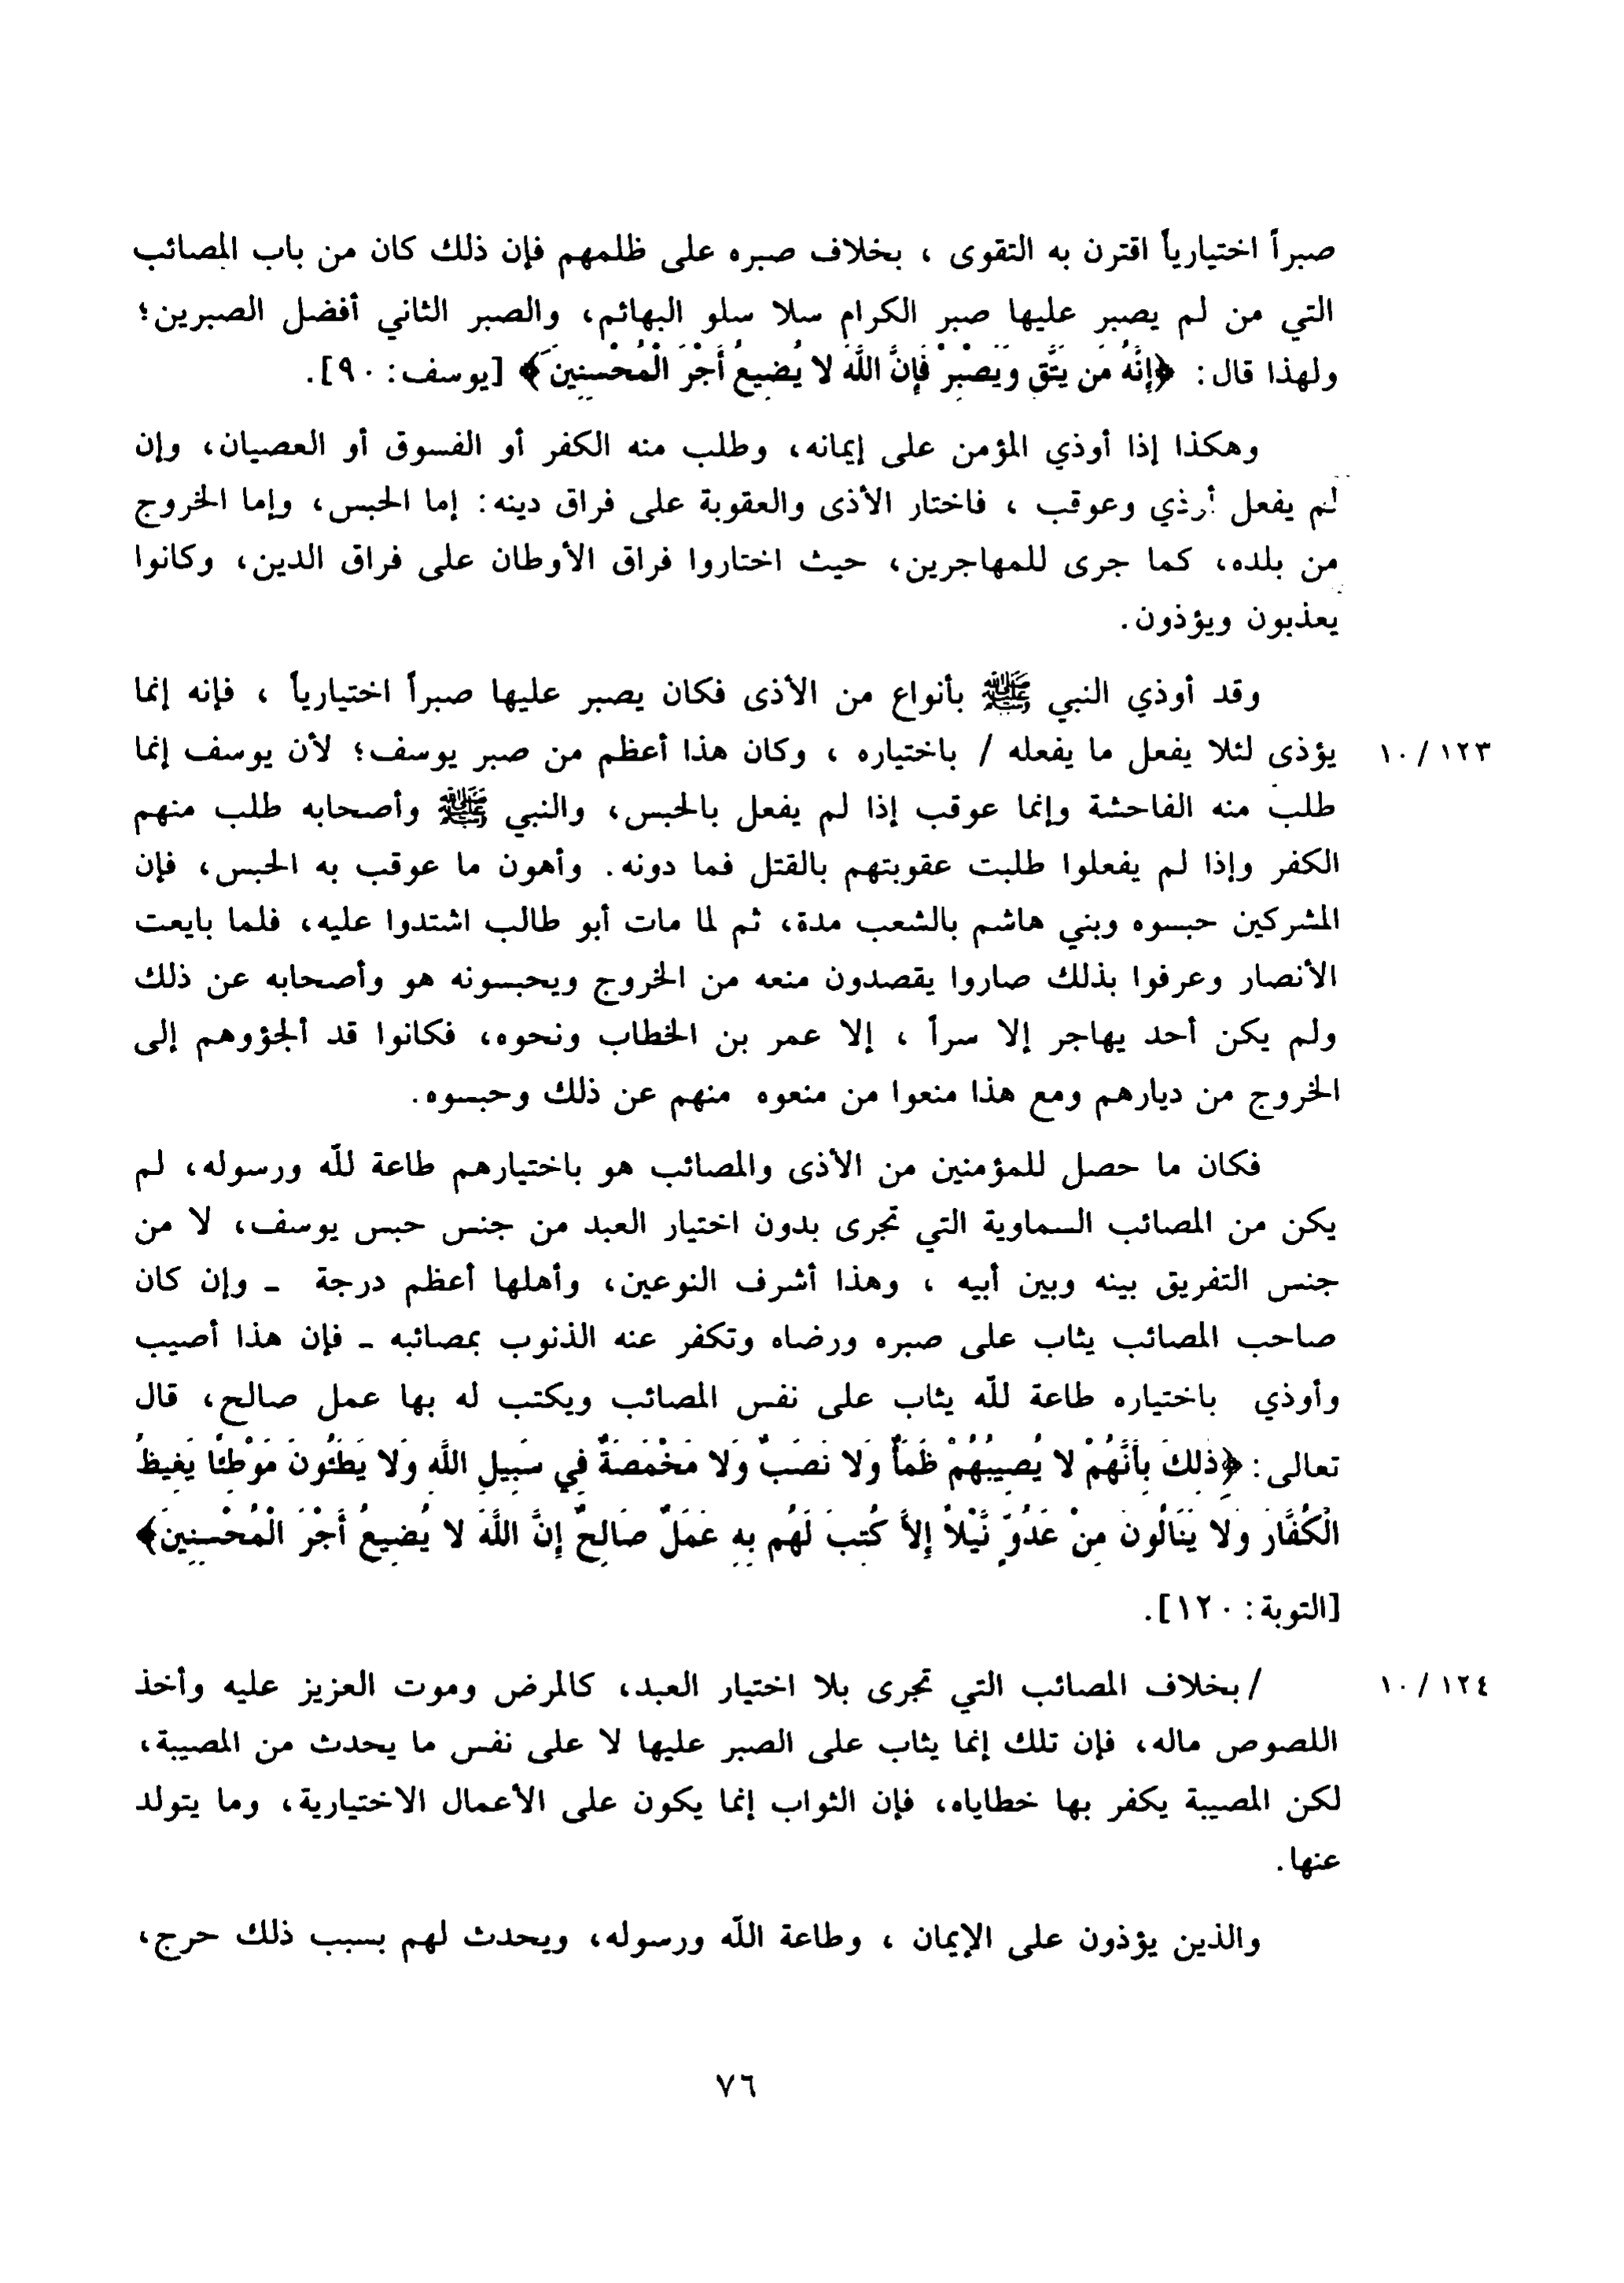 صبراً اختيارياً اقترن به التقوى ، بخلاف صبره على ظلمهم فإن ذلك كان من باب المصائب
التي من لم يصبر عليها صبر الكرام سلا سلو البهائم، والصبر الثاني أفضل الصبرين؛
ولهذا قال: ﴿إِنَّهُ مَن يَتَّقِ وَيَصْبِرْ فَإِنَّ اللَّهَ لا يُضِيعُ أَجْرَ الْمُحْسِنِينَ﴾ [يوسف: ٩٠].
وهكذا إذا أوذي المؤمن على إيمانه، وطلب منه الكفر أو الفسوق أو العصيان، وإن
لم يفعل أوذي وعوقب ، فاختار الأذى والعقوبة على فراق دينه: إما الحبس، وإما الخروج
من بلده، كما جرى للمهاجرين، حيث اختاروا فراق الأوطان على فراق الدين، وكانوا
يعذبون ويؤذون.
وقد أوذي النبي ﷺ بأنواع من الأذى فكان يصبر عليها صبراً اختيارياً ، فإنه إنما
١٠/١٢٣ يؤذى لئلا يفعل ما يفعله / باختياره ، وكان هذا أعظم من صبر يوسف؛ لأن يوسف إنما
طلب منه الفاحشة وإنما عوقب إذا لم يفعل بالحبس، والنبي ﷺ وأصحابه طلب منهم
الكفر وإذا لم يفعلوا طلبت عقوبتهم بالقتل فما دونه. وأهون ما عوقب به الحبس، فإن
المشركين حبسوه وبني هاشم بالشعب مدة، ثم لما مات أبو طالب اشتدوا عليه، فلما بايعت
الأنصار وعرفوا بذلك صاروا يقصدون منعه من الخروج ويحبسونه هو وأصحابه عن ذلك
ولم يكن أحد يهاجر إلا سراً ، إلا عمر بن الخطاب ونحوه، فكانوا قد ألجؤوهم إلى
الخروج من ديارهم ومع هذا منعوا من منعوه منهم عن ذلك وحبسوه.
فكان ما حصل للمؤمنين من الأذى والمصائب هو باختيارهم طاعة للّه ورسوله، لم
يكن من المصائب السماوية التي تجرى بدون اختيار العبد من جنس حبس يوسف، لا من
جنس التفريق بينه وبين أبيه ، وهذا أشرف النوعين، وأهلها أعظم درجة ـ وإن كان
صاحب المصائب يثاب على صبره ورضاه وتكفر عنه الذنوب بمصائبه ـ فإن هذا أصيب
وأوذي باختياره طاعة للّه يثاب على نفس المصائب ويكتب له بها عمل صالح، قال
تعالى: ﴿ذَلِكَ بِأَنَّهُمْ لا يُصِيبُهُمْ ظَمَأٌ وَلا نَصَبٌ وَلا مَخْمَصَةٌ فِي سَبِيلِ اللَّهِ وَلا يَطَئُونَ مَوْطِئًا يَغِيظُ
الْكُفَّارَ وَلا يَنَالُونَ مِنْ عَدُوٍّ نَّيْلاً إِلاَّ كُتِبَ لَهُم بِهِ عَمَلٌ صَالِحٌ إِنَّ اللَّهَ لا يُضِيعُ أَجْرَ الْمُحْسِنِينَ﴾
[التوبة: ١٢٠].
١٠/١٢٤ /بخلاف المصائب التي تجرى بلا اختيار العبد، كالمرض وموت العزيز عليه وأخذ
اللصوص ماله، فإن تلك إنما يثاب على الصبر عليها لا على نفس ما يحدث من المصيبة،
لكن المصيبة يكفر بها خطاياه، فإن الثواب إنما يكون على الأعمال الاختيارية، وما يتولد
عنها.
والذين يؤذون على الإيمان ، وطاعة اللّه ورسوله، ويحدث لهم بسبب ذلك حرج،
٧٦